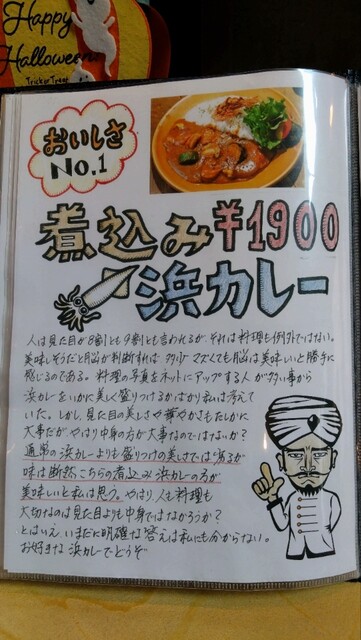 Happy
Halloween
Trick or Treat
おいしさ
No.1
煮込み¥1900
浜カレー
人は見た目が8割とも9割とも言われるが、それは料理も例外ではない。
美味しそうだと脳が判断すれば 多少マズくても脳は美味いと勝手に
感じるのである。料理の写真をネットにアップする人が多い事から
浜カレーをいかに美しく盛りつけるかばかり私は考えて
いた。しかし、見た目の美しさや華やかさもたしかに
大事だが やはり中身の方が大事なのではないか?
通常の浜カレーよりも盛りつけの美しさでは劣るが
味は断然こちらの煮込み浜カレーの方が
美味しいと私は思う。やはり人も料理も
大切なのは見た目よりも中身ではなかろうか?
とはいえ いまだに明確な答えは私にも分からない。
お好きな浜カレーでどうぞ